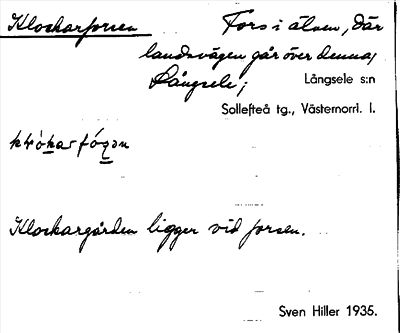 Klockarforsen
Fors i älven, där
landsvägen går över denna,
Långsele;
Långsele s:n
Sollefteå tg., Västernorrl. l.
Klockargården ligger vid forsen.
Sven Hiller 1935.